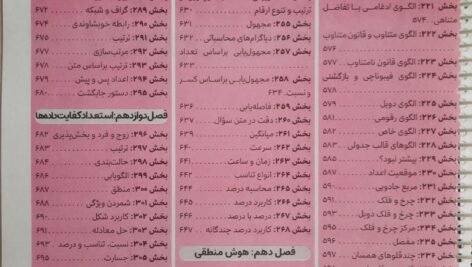 بخش ۲۲۱: الگوی ادغامی با تفاضل
متناهی. ۵۷۴
بخش ۲۲۲: الگوی متناوب و قانون متناوب
۵۷۷
بخش ۲۲۳: قانون نامتناوب ۵۷۷
بخش ۲۲۴: الگوی فیبوناچی و بازگشتی
بخش ۲۲۵: الگوی دوبل ۵۷۹
بخش ۲۲۶: الگوی رقومی ۵۸۱
بخش ۲۲۷: الگوی خاص ۵۸۲
بخش ۲۲۸: الگوهای قالب جدولی ۵۸۳
بخش ۲۲۹: بیشتر نبود؟
بخش ۲۳۰: موقعیت اعداد ۵۸۷
بخش ۲۳۱: مربع جادویی
بخش ۲۳۲: چرخ و فلک
بخش ۲۳۳: چرخ و فلک دوبل ۵۹۳
بخش ۲۳۴: مرکز چرخ و فلک ۵۹۴
بخش ۲۳۵: مفصل ۵۹۶
بخش ۲۳۶: چندقلوهای همسان ۵۹۷
ترتیب و تنوع ارقام ۶۳۰
بخش ۲۵۵: مجهول ۶۳۱
بخش ۲۵۶: دیاگرام‌های محاسباتی ۶۳۲
بخش ۲۵۷: مجهول‌یابی براساس تعداد
۶۳۳
بخش ۲۵۸: مجهول‌یابی براساس کسر
و نسبت ۶۳۴
بخش ۲۵۹: فاصله‌یابی ۶۳۶
بخش ۲۶۰: دقت در متن سؤال ۶۳۷
بخش ۲۶۱: میانگین ۶۳۹
بخش ۲۶۲: سرعت ۶۴۰
بخش ۲۶۳: زمان و ساعت ۶۴۱
بخش ۲۶۴: انواع تناسب ۶۴۲
بخش ۲۶۵: محاسبه درصد ۶۴۴
بخش ۲۶۶: کاربرد درصد ۶۴۵
بخش ۲۶۷: درصد با درصد ۶۴۶
بخش ۲۶۸: کاربرد درصد چندگانه ۶۴۷
فصل دهم: هوش منطقی
بخش ۲۸۹: گراف و شبکه ۶۷۲
بخش ۲۹۰: رابطه خویشاوندی ۶۷۴
بخش ۲۹۱: ترتیب ۶۷۵
بخش ۲۹۲: مرتب‌سازی ۶۷۷
بخش ۲۹۳: ترتیب براساس متن ۶۷۸
بخش ۲۹۴: اعداد پس و پیش ۶۷۹
بخش ۲۹۵: دستور جابگشت ۶۸۰
فصل دوازدهم: استعداد کفایت داده‌ها
بخش ۲۹۶: زوج و فرد و بخش‌پذیری ۶۸۲
بخش ۲۹۷: ترتیب ۶۸۳
بخش ۲۹۸: حالت‌بندی ۶۸۴
بخش ۲۹۹: الگویابی ۶۸۶
بخش ۳۰۰: منطق ۶۸۷
بخش ۳۰۱: شمردن ویژگی ۶۸۸
بخش ۳۰۲: کاربرد شکل ۶۹۰
بخش ۳۰۳: حل معادله ۶۹۱
بخش ۳۰۴: نسبت، تناسب و درصد ۶۹۳
بخش ۳۰۵: جسارت ۶۹۵